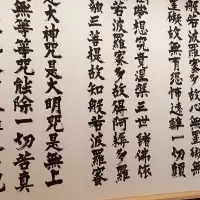 罣礙故無有恐怖遠離一切顛
夢想究竟涅槃三世諸佛依
般若波羅蜜多故得阿耨多羅
藐三菩提故知般若波羅蜜
是大神咒是大明咒是無上
無等等咒能除一切苦真